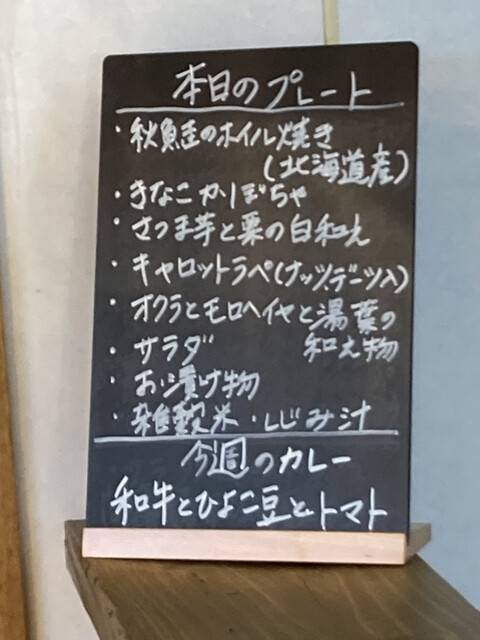 本日のプレート
・秋鮭のホイル焼き
(北海道産)
・きなこかぼちゃ
・さつま芋と栗の白和え
・キャロットラペ(ナッツ、デーツ入)
・オクラとモロヘイヤと湯葉の
和え物
・サラダ
・お漬け物
・雑穀米・しじみ汁
今週のカレー
和牛とひよこ豆とトマト